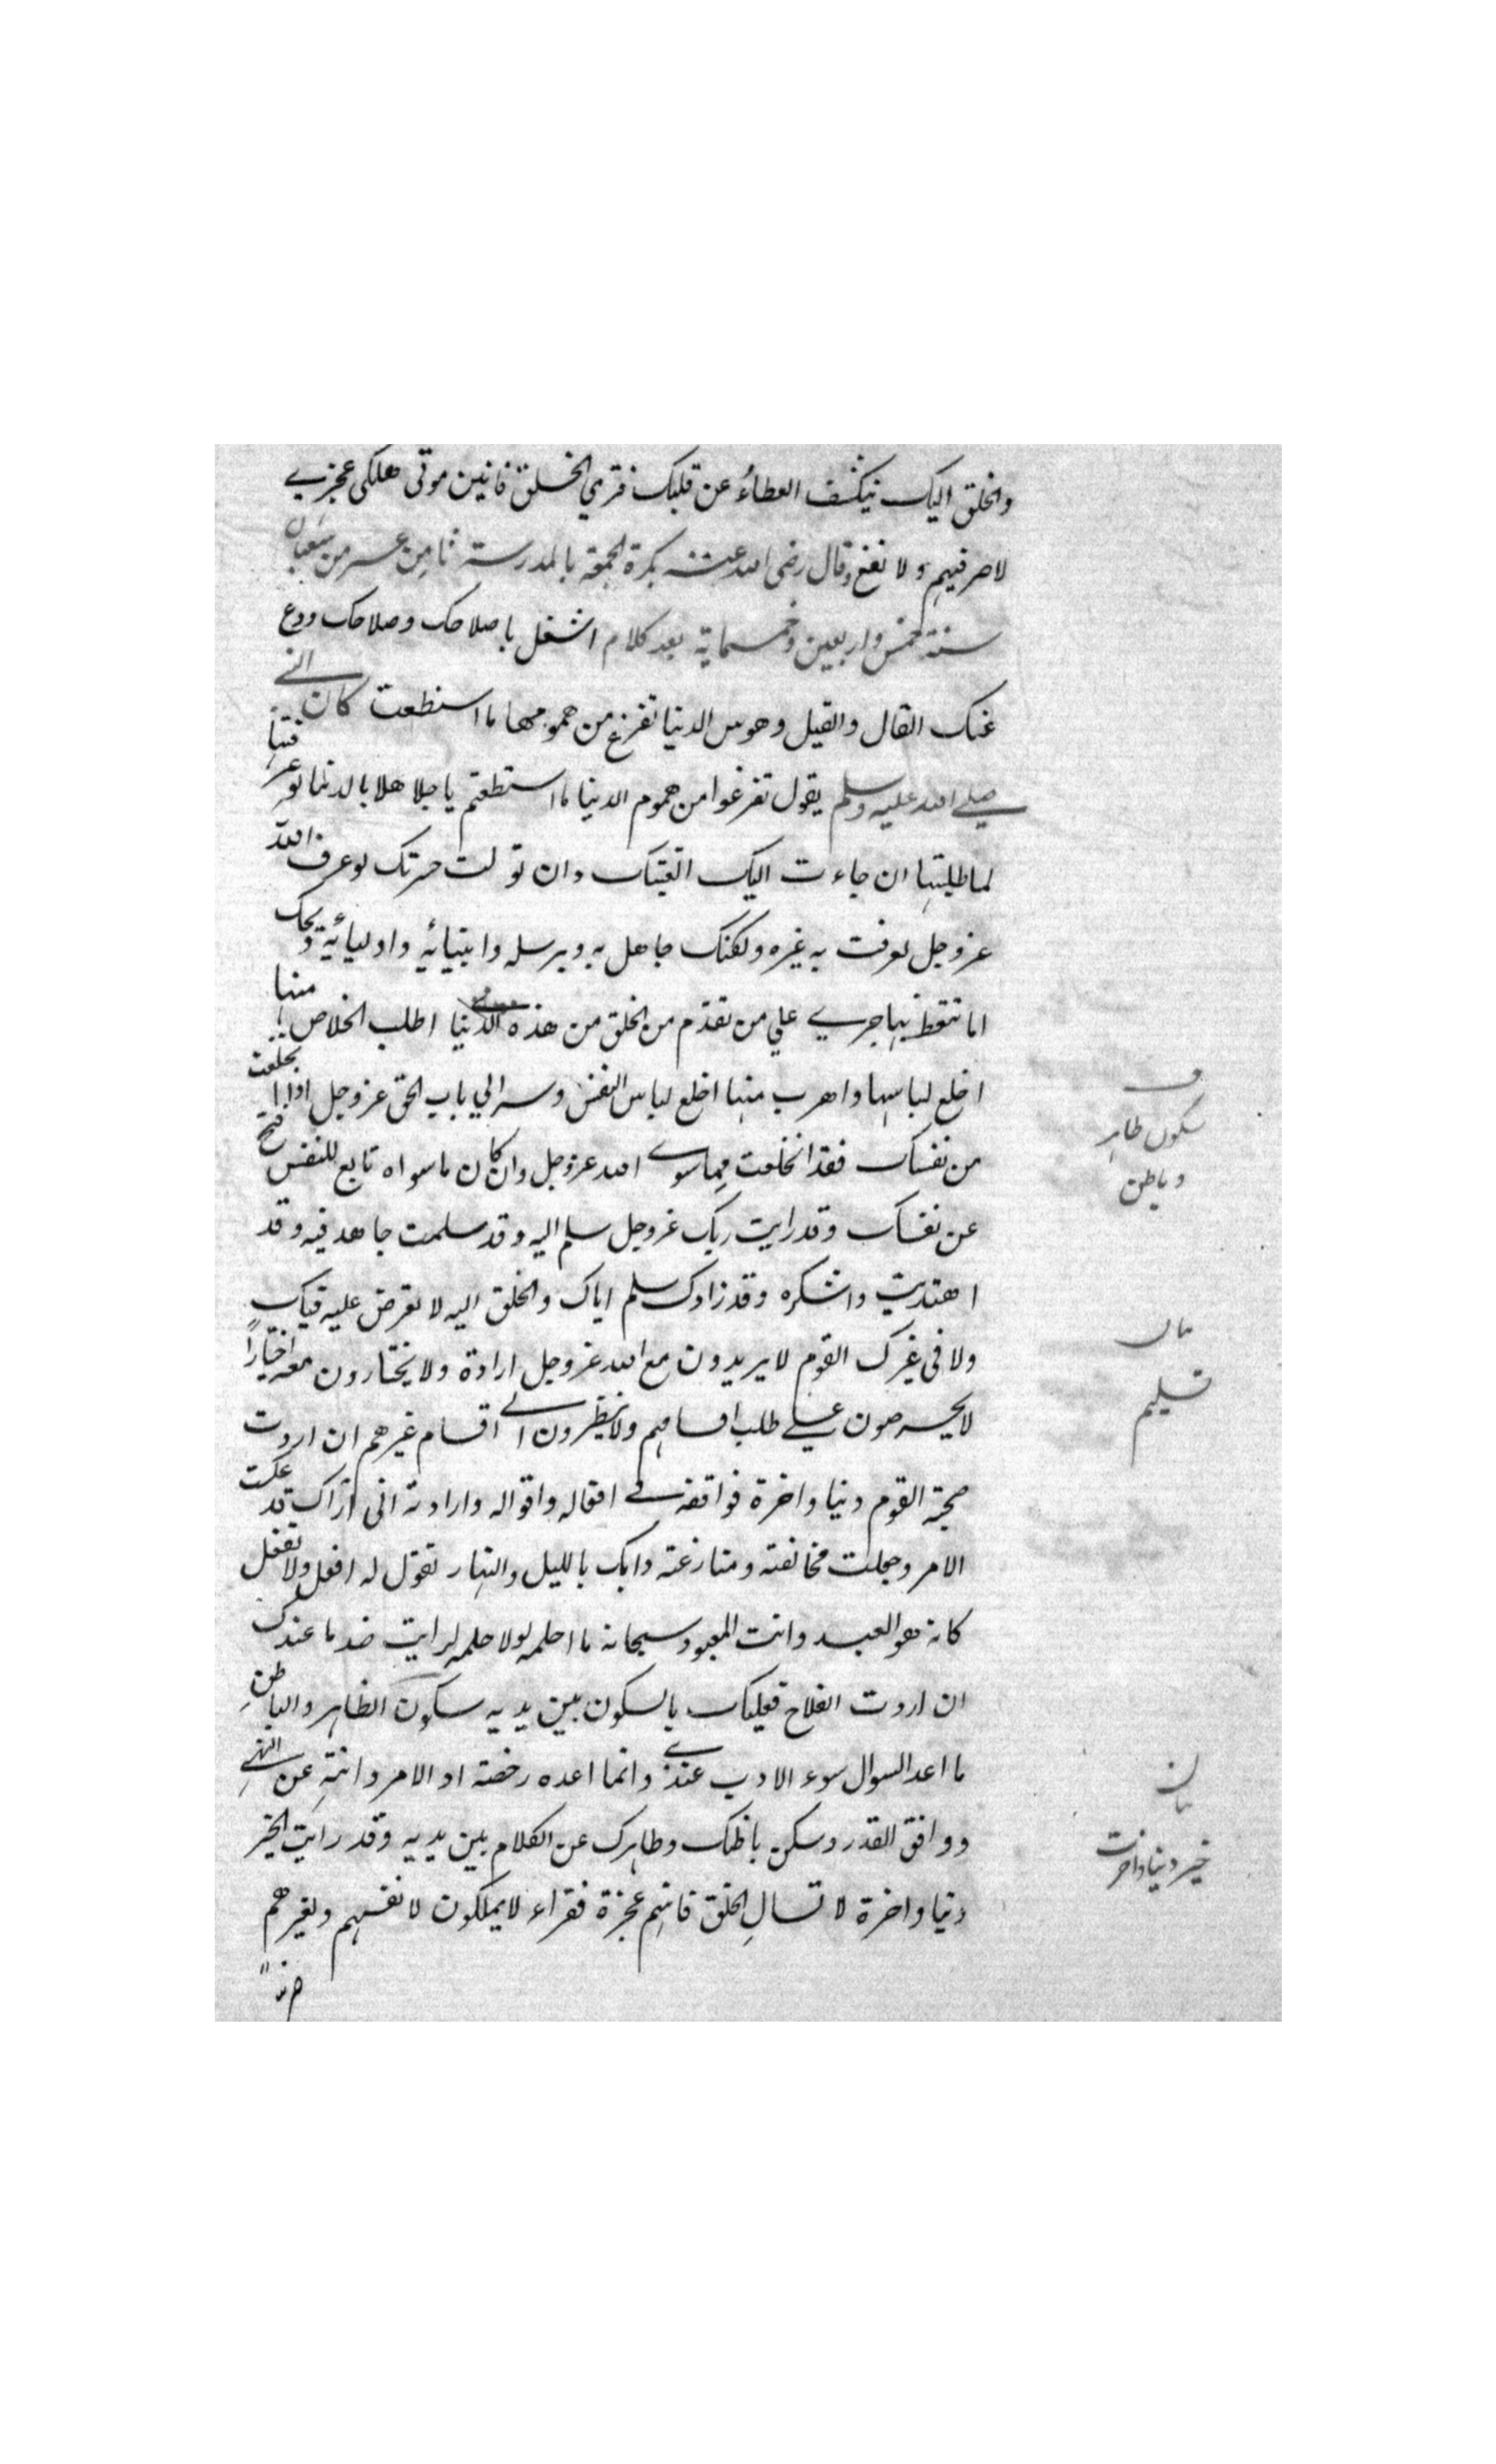 والخلق اليك ينكشف الغطاء عن قلبك فتري الخلق فانين موتى هلكى عجزى
لا ضر فيهم ولا نفع وقال رضى الله عنه بكرة الجمعة بالمدرسة ثامن عشر من شعبان
سنة خمس واربعين وخمسماية بعد كلام اشغل باصلاحك وصلاحك ودع
عنك القال والقيل وهوس الدنيا تفرغ من همومها ما استطعت كان النبي
صلى الله عليه وسلم يقول تفرغوا من هموم الدنيا ما استطعتم يا جاهلا بالدنيا لو عرفتها
لما طلبتها ان جاءت اليك اتعبتك وان تولت حسرتك لو عرفت الله
عز وجل لعرفت به غيره ولكنك جاهل به وبرسله وانبيائه واوليائه ويحك
اما تتعظ بما جرى على من تقدم من الخلق من هذه الدنيا اطلب الخلاص منها
اخلع لباسها واهرب منها اخلع لباس النفس وسر الي باب الحق عز وجل اذا انخلعت
من نفسك فقد انخلعت مما سوى الله عز وجل وان كان ما سواه تابع للنفس تنح
عن نفسك وقد رايت ربك عز وجل سلم اليه وقد سلمت جاهد فيه وقد
اهتديت واشكره وقد زادك سلم اياك والخلق اليه لا تعرض عليه فيك
ولا فى غيرك القوم لا يريدون مع الله عز وجل ارادة ولا يختارون معه اختيارا
لا يحرصون على طلب اقسامهم ولا ينظرون الى اقسام غيرهم ان اردت
صحبة القوم دنيا واخرة فوافقه فى افعاله واقواله وارادته انى اراك قد عكست
الامر وجعلت مخالفته ومنازعته دابك بالليل والنهار تقول له افعل ولا تفعل
كانه هو العبد وانت المعبود سبحانه ما احلمه لولا حلمه لرايت ضد ما عندك
ان اردت الفلاح فعليك بالسكون بين يديه سكون الظاهر والباطن
ما اعد السوال سوء الادب عندى وانما اعده رخصة اد الامر وانته عن النهى
ووافق القدر وسكن باطنك وظاهرك عن الكلام بين يديه وقد رايت الخير
دنيا واخرة لا تسال الخلق فانهم عجزة فقراء لا يملكون لانفسهم ولغيرهم
سكون ظاهر
وباطن
بيان
تسليم
بيان
خير دنيا واخرت